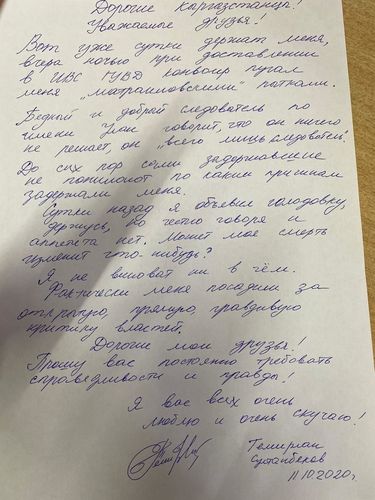 Дорогие Кыргызстанцы!
Уважаемые друзья!
Вот уже сутки держат меня,
вчера ночью при доставлении
в ИВС ГУВД конвоир пугал
меня "матраимовскими" пытками.
Бедный и добрый следователь по
имени Улан говорит, что он ничего
не решает, он "всего лишь следователь".
До сих пор сами задержавшие
не понимают по каким причинам
задержали меня.
Сутки назад я объявил голодовку,
держусь, но честно говоря и
аппетита нет. Может моя смерть
изменит что-нибудь?
Я не виноват ни в чём.
Фактически меня посадили за
открытую, прямую, правдивую
критику властей.
Дорогие мои друзья!
Прошу вас постоянно требовать
справедливости и правды!
Я вас всех очень
люблю и очень скучаю!
Темирлан
Султанбеков
11.10.2020г.